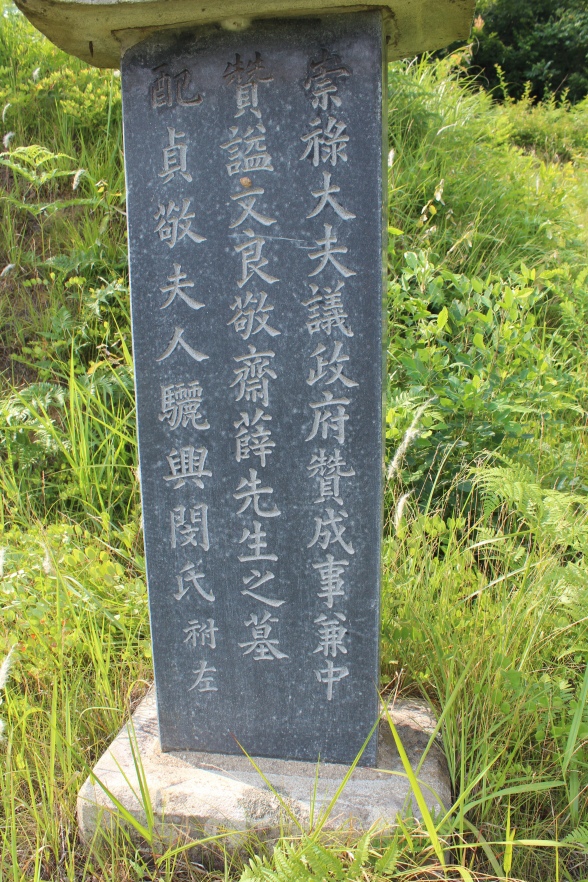 崇祿大夫議政府贊成事兼中
贊謚文良敬齋薛先生之墓
配貞敬夫人驪興閔氏祔左